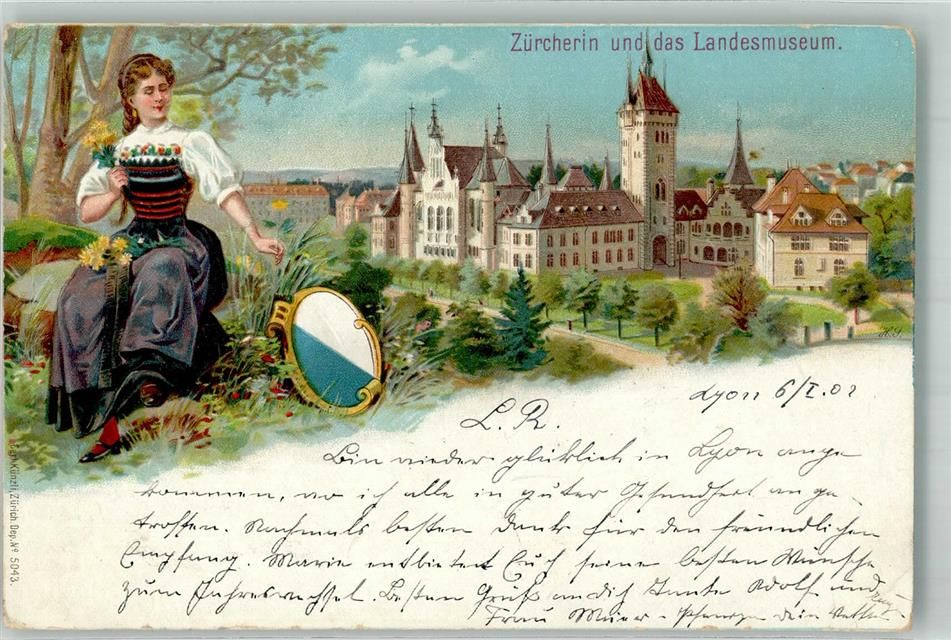 Zürcherin und das Landesmuseum.
Lyon 6/I.02
L. R.
Bin wieder glücklich in Lyon ange
kommen, wo ich alle in guter Gesundheit ange-
troffen. Nochmals besten Dank für den freundlichen
Empfang. Marie entbietet Euch seine besten Wünsche
zum Jahreswechsel. Besten Gruß an dich Tante Adolf und
Frau Meier - dein Vetter
Künzli, Zürich. Dep. Nº 5043.